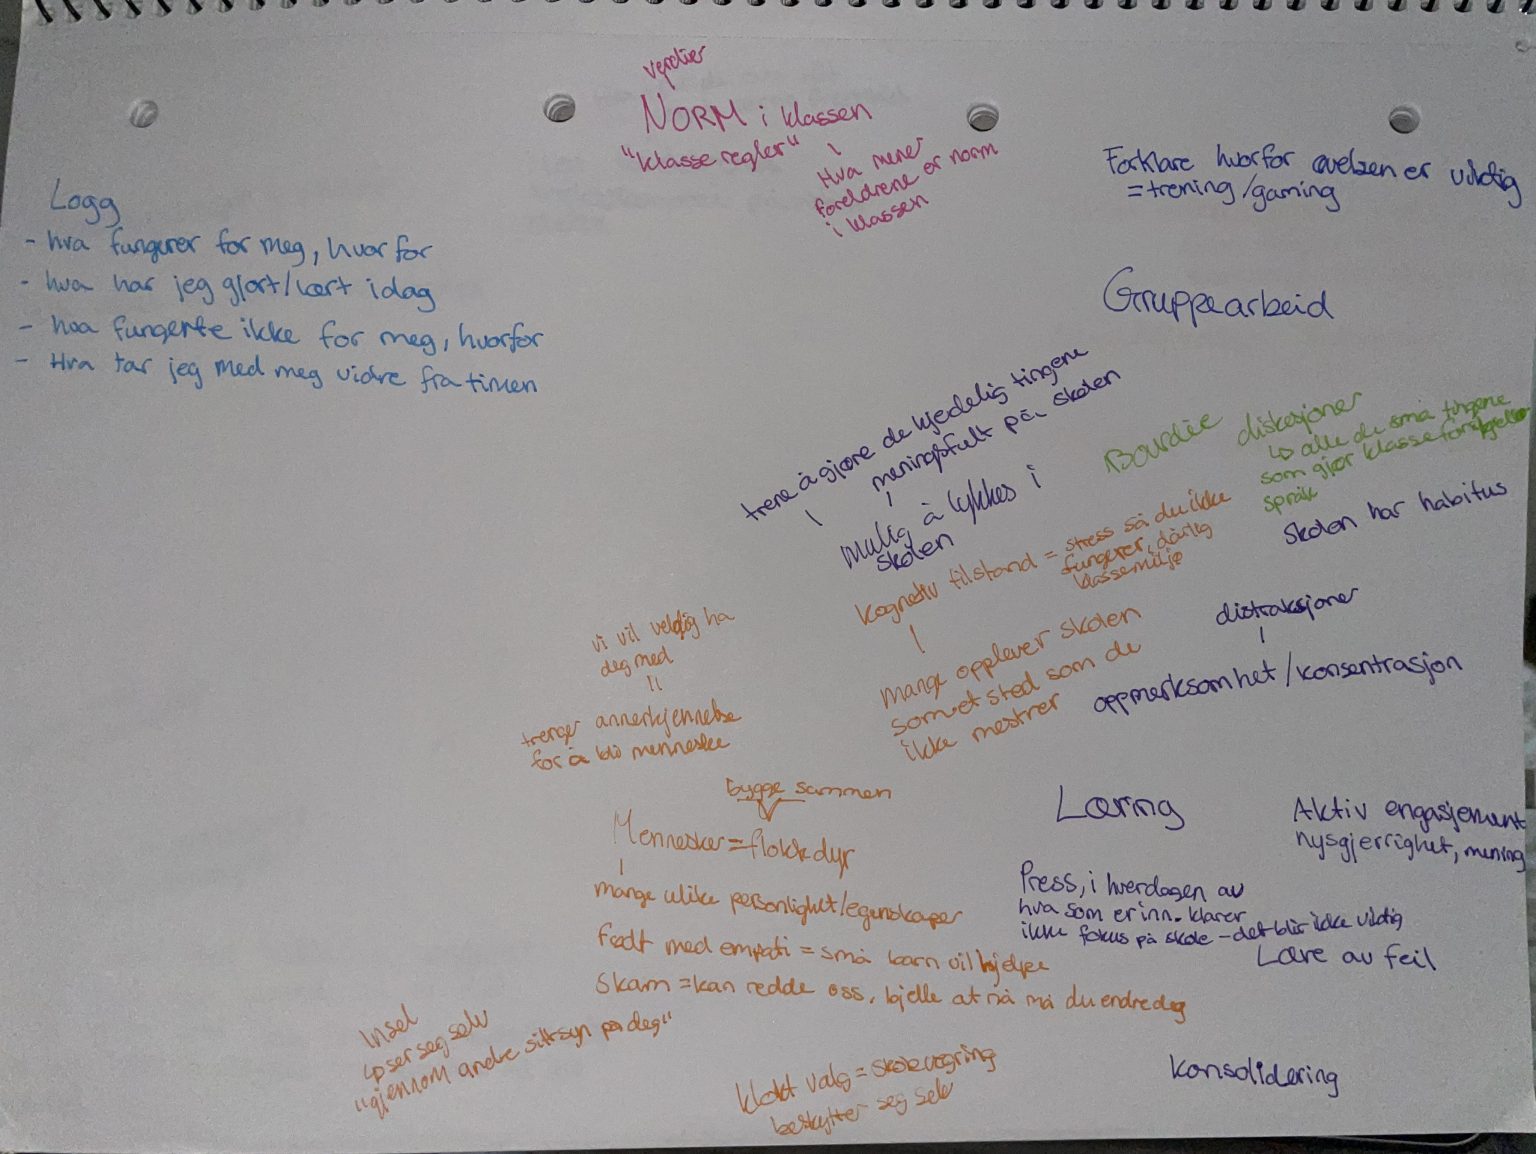 verdier
NORM i klassen
"klasse regler"
Hva mener
foreldrene er norm
i klassen
Forklare hvorfor øvelsen er viktig
= trening/gaming
Logg
- hva fungerer for meg, hvorfor
- hva har jeg gjort/lært idag
- hva fungerte ikke for meg, hvorfor
- Hva tar jeg med meg vidre fra timen
Gruppearbeid
trene å gjøre de kjedelig tingene
meningsfult på skolen
mulig å lykkes i
skolen
Bourdie
diskusjoner
↳ alle de små tingene
som gjør
språk
Skolen har habitus
kognetiv tilstand = stress så du ikke
fungerer, dårlig
klassemiljø
mange opplever skolen
som et sted som de
ikke mestrer
distraksjoner
oppmerksomhet/konsentrasjon
vi vil veldig ha
deg med
trenger annerkjennelse
for å bli menneske
bygge sammen
Mennesker = flokkdyr
mange ulike personlighet/egenskaper
født med empati = små barn vil hjelpe
Skam = kan redde oss, bjelle at nå må du endre deg
Læring
Aktiv engasjement
nysgjerrighet, mening
Press, i hverdagen av
hva som er inn. klarer
ikke fokus på skole - det blir ikke viktig
Lære av feil
Insel
↳ ser seg selv
"gjennom andre sitt syn på deg"
klokt valg = skolevegring
beskytter seg selv
Konsolidering